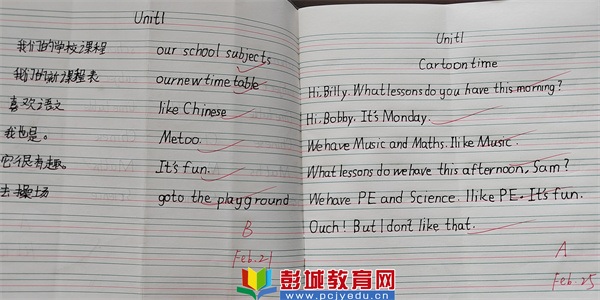 Unit1
我们的学校课程 our school subjects
我们的新课程表 our new time table
喜欢语文 like Chinese
我也是。 Me too.
它很有趣。 It's fun.
去操场 go to the playground
B
Feb.21
Unit1
Cartoon time
Hi, Billy. What lessons do you have this morning?
Hi, Bobby. It's Monday.
We have Music and Maths. I like Music.
What lessons do we have this afternoon, Sam?
We have PE and Science. I like PE. It's fun.
Ouch! But I don't like that.
A
Feb.25
彭城教育网
www.pcjyedu.cn